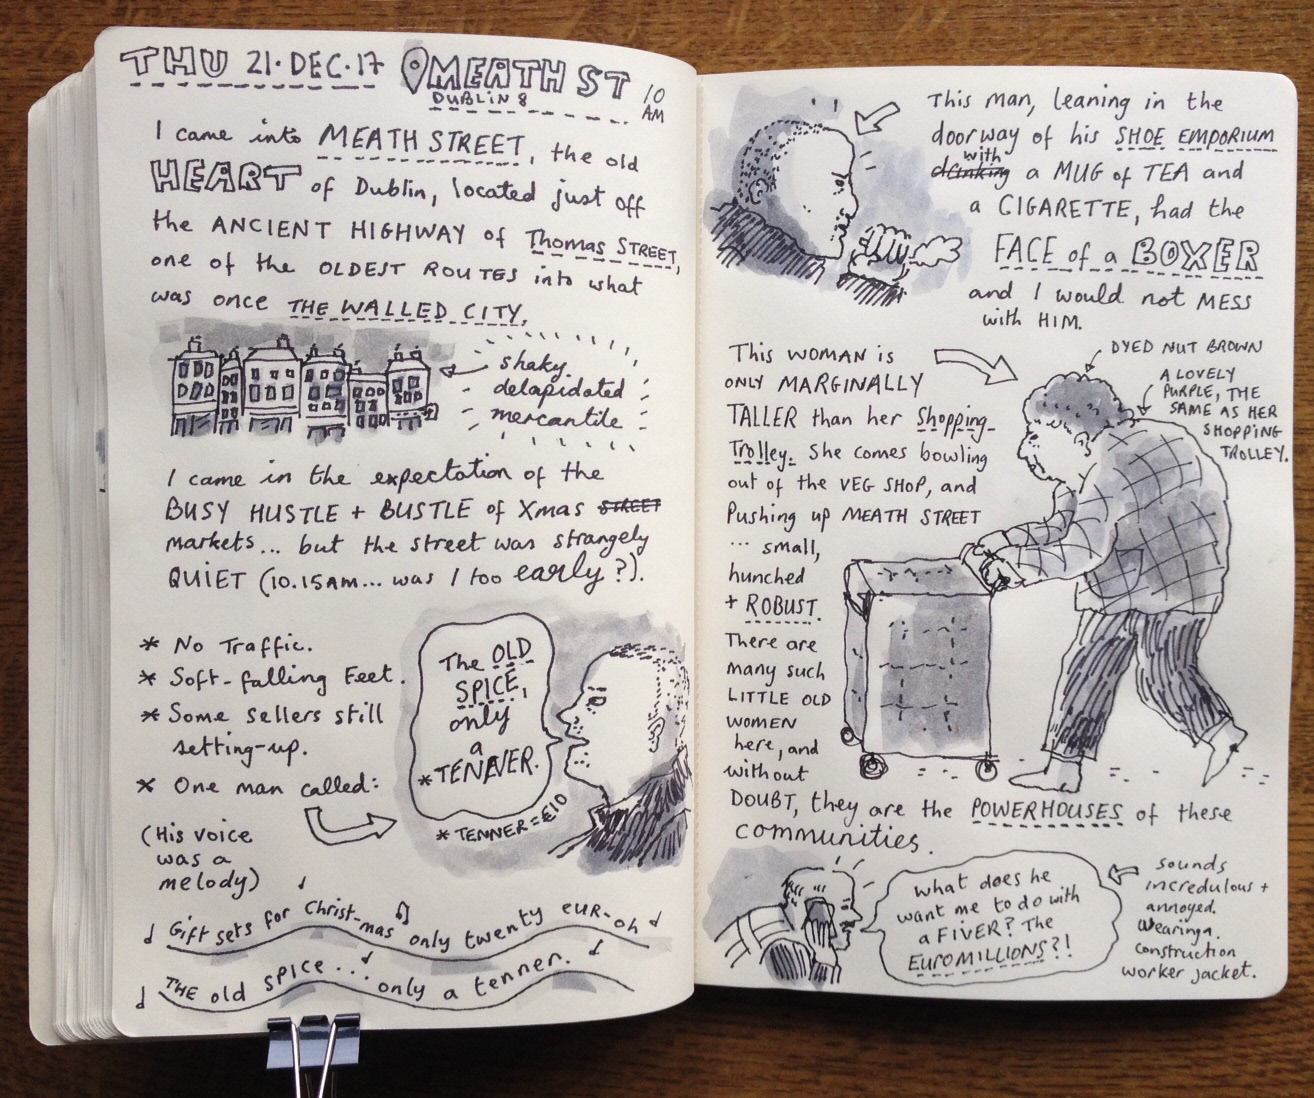 THU 21·DEC·17 MEATH ST
DUBLIN 8
10
AM
I came into MEATH STREET, the old
HEART of Dublin, located just off
the ANCIENT HIGHWAY of Thomas STREET,
one of the OLDEST ROUTES into what
was once THE WALLED CITY.
shaky
delapidated
mercantile
I came in the expectation of the
BUSY HUSTLE + BUSTLE of Xmas STREET
markets... but the street was strangely
QUIET (10.15AM... was I too early?).
* No Traffic.
* Soft-falling Feet.
* Some sellers still
setting-up.
* One man called:
(His voice
was a
melody)
The OLD
SPICE,
only
a
*TENNER.
* TENNER = £10
Gift sets for Christ-mas only twenty EUR-oh
THE old SPICE... only a tenner.
This man, leaning in the
doorway of his SHOE EMPORIUM
with
drinking a MUG of TEA and
a CIGARETTE, had the
FACE of a BOXER
and I would not MESS
with HIM.
This WOMAN is
ONLY MARGINALLY
TALLER than her Shopping-
Trolley. She comes bowling
out of the VEG SHOP, and
Pushing up MEATH STREET
... small,
hunched
+ ROBUST.
There are
many such
LITTLE OLD
WOMEN
here, and
without
DOUBT, they are the POWERHOUSES of these
communities.
DYED NUT BROWN
A LOVELY
PURPLE, THE
SAME AS HER
SHOPPING
TROLLEY.
What does he
want me to do with
a FIVER? The
EUROMILLIONS?!
sounds
incredulous +
annoyed.
Wearing a
construction
worker jacket.